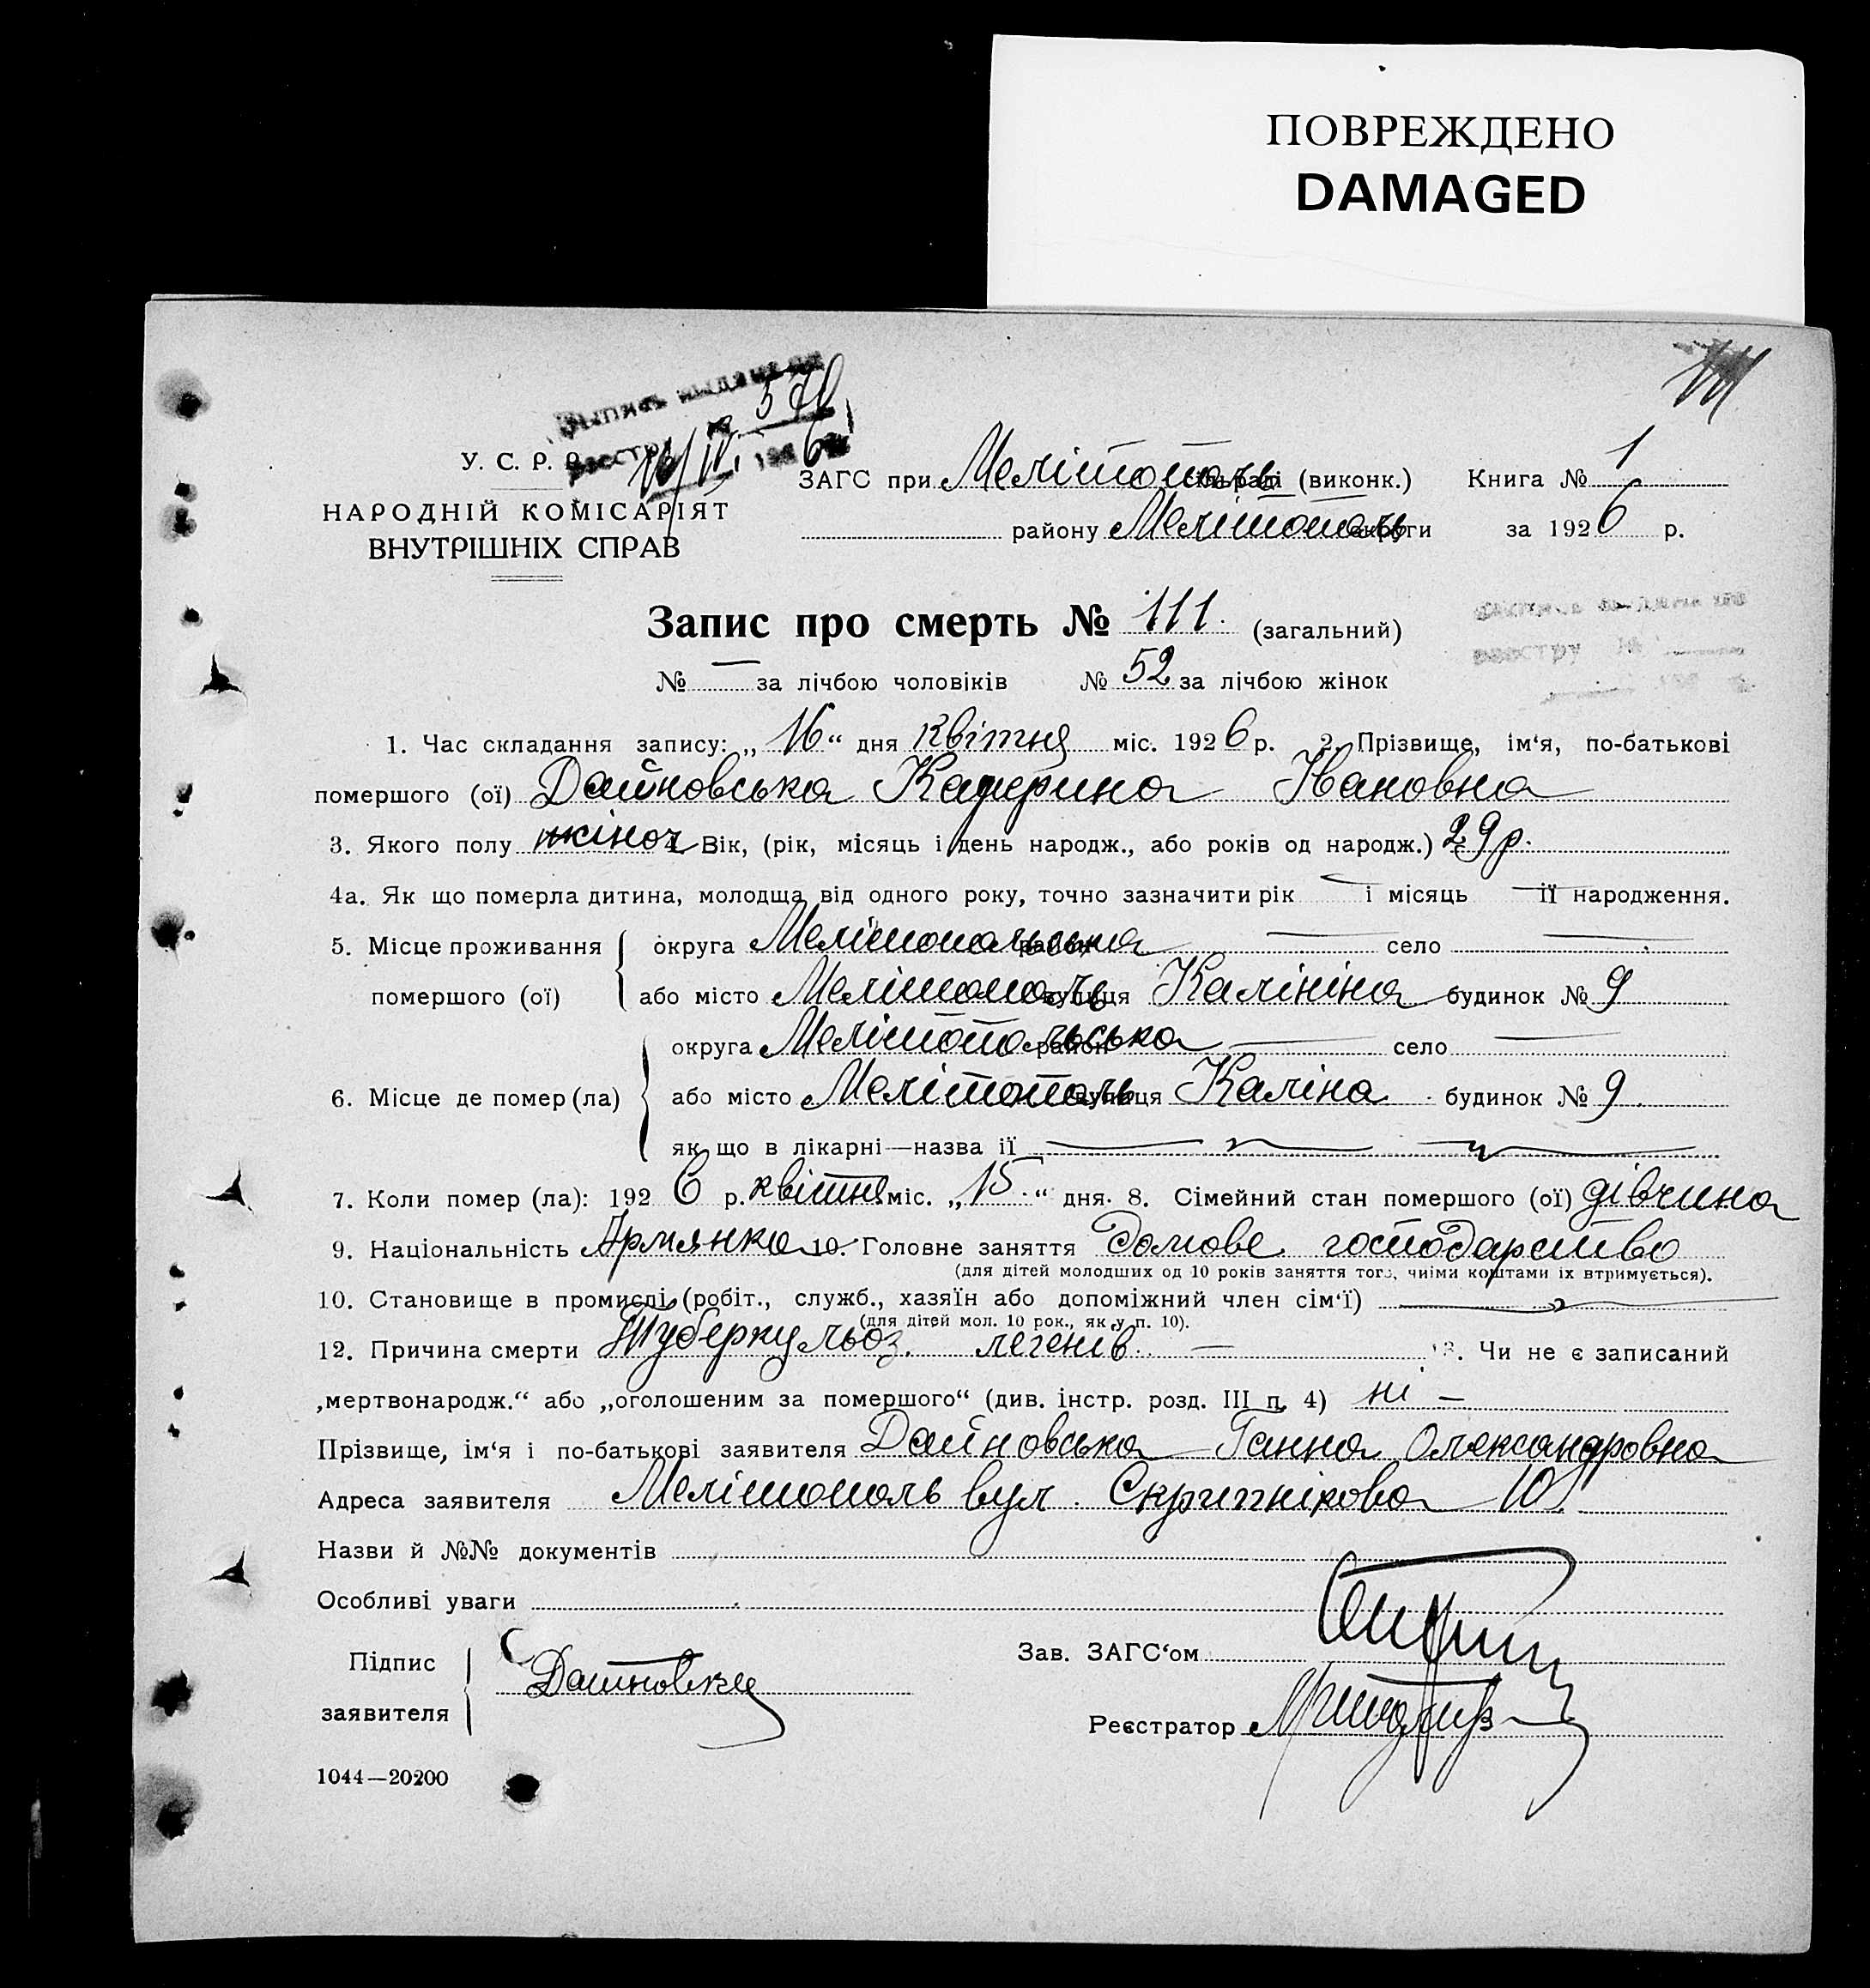 ПОВРЕЖДЕНО
DAMAGED
Выпись выдана
реестру № 578
16/IV 1926
У. С. Р. Р.
НАРОДНІЙ КОМІСАРІЯТ
ВНУТРІШНІХ СПРАВ
ЗАГС при Мелітополь раді (виконк.) Книга № 1
району Мелітополь округи за 1926 р.
Запис про смерть № 111. (загальний)
№ — за лічбою чоловіків № 52 за лічбою жінок
реестру №
1. Час складання запису: „16“ дня Квітня міс. 1926 р. 2. Прізвище, ім‘я, по-батькові
помершого (ої) Дайновська Катерина Івановна
3. Якого полу жіноч 4. Вік, (рік, місяць і день народж., або років од народж.) 29 р.
4а. Як що померла дитина, молодща від одного року, точно зазначити рік — і місяць — її народження.
5. Місце проживання округа Мелітопольська район — село —
помершого (ої) або місто Мелітополь вулиця Калініна будинок № 9
округа Мелітопольська район — село —
6. Місце де помер (ла) або місто Мелітополь вулиця Каліна будинок № 9.
як що в лікарні—назва її —
7. Коли помер (ла): 1926 р. квітня міс. „15“ дня. 8. Сімейний стан помершого (ої) дівчина
9. Національність Армянка 10. Головне заняття Домове господарство
(для дітей молодших од 10 років заняття того, чиїми коштами їх втримується).
10. Становище в промислі (робіт., служб., хазяїн або допоміжний член сім‘ї) —
(для дітей мол. 10 рок., як у п. 10).
12. Причина смерти Туберкульоз легенів. — 13. Чи не є записаний
„мертвонародж.“ або „оголошеним за помершого“ (див. інстр. розд. III п. 4) ні —
Прізвище, ім‘я і по-батькові заявителя Дайновська Ганна Олександровна
Адреса заявителя Мелітополь вул. Скрипнікова 101
Назви й №№ документів
Особливі уваги
Підпис
заявителя
Дайновская
Зав. ЗАГС‘ом
Реєстратор
1044—20200